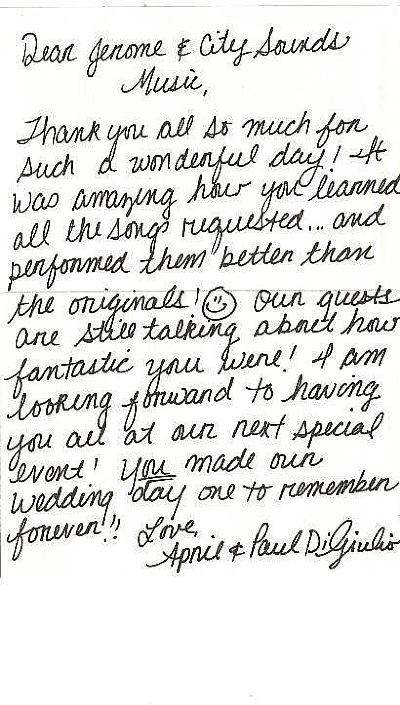 Dear Jerome & City Sounds
Music,
Thank you all so much for
such a wonderful day! It
was amazing how you learned
all the songs requested... and
performed them better than
the originals! ☺ Our guests
are still talking about how
fantastic you were! I am
looking forward to having
you all at our next special
event! You made our
wedding day one to remember
forever!! Love,
April & Paul DiGiulio